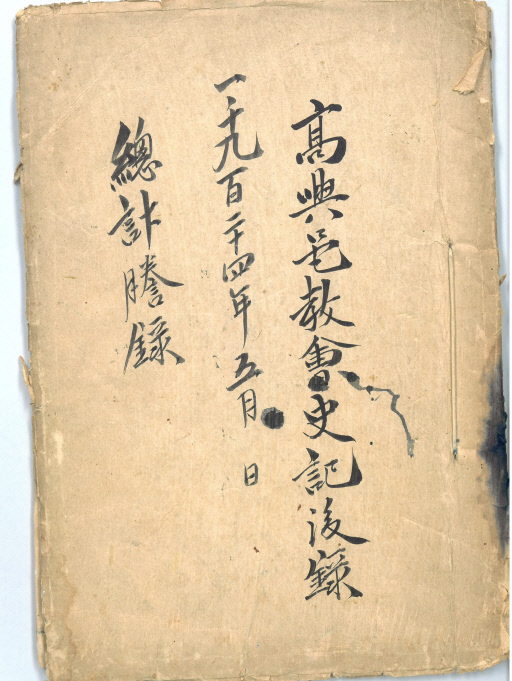 高興邑教會史記後錄
一千九百二十四年五月 日
總計謄錄